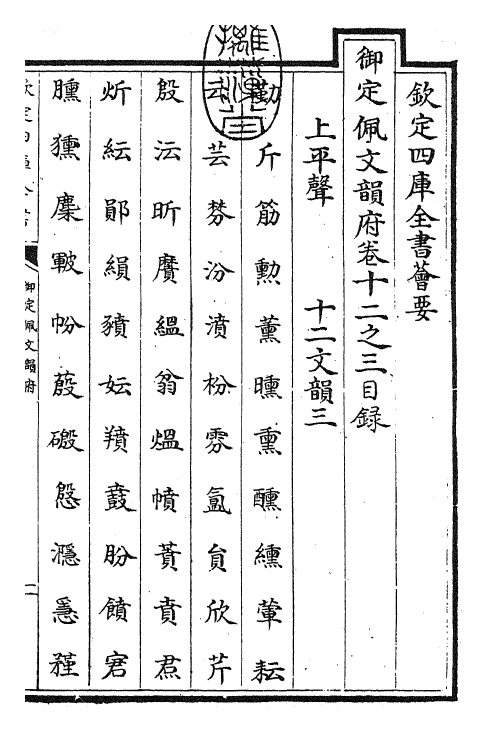 欽定四庫全書薈要
御定佩文韻府卷十二之三目錄
上平聲 十二文韻三
勤斤筋勳薰曛熏醺纁葷耘
云芸棼汾濆枌雰氲貟欣芹
殷沄昕黂緼翁煴幩蕡賁焄
炘紜鄖縜豶妘羵鼖肦饙宭
臐獯麇皸帉蒑磤慇濦㥯䅵
御定佩文韻府